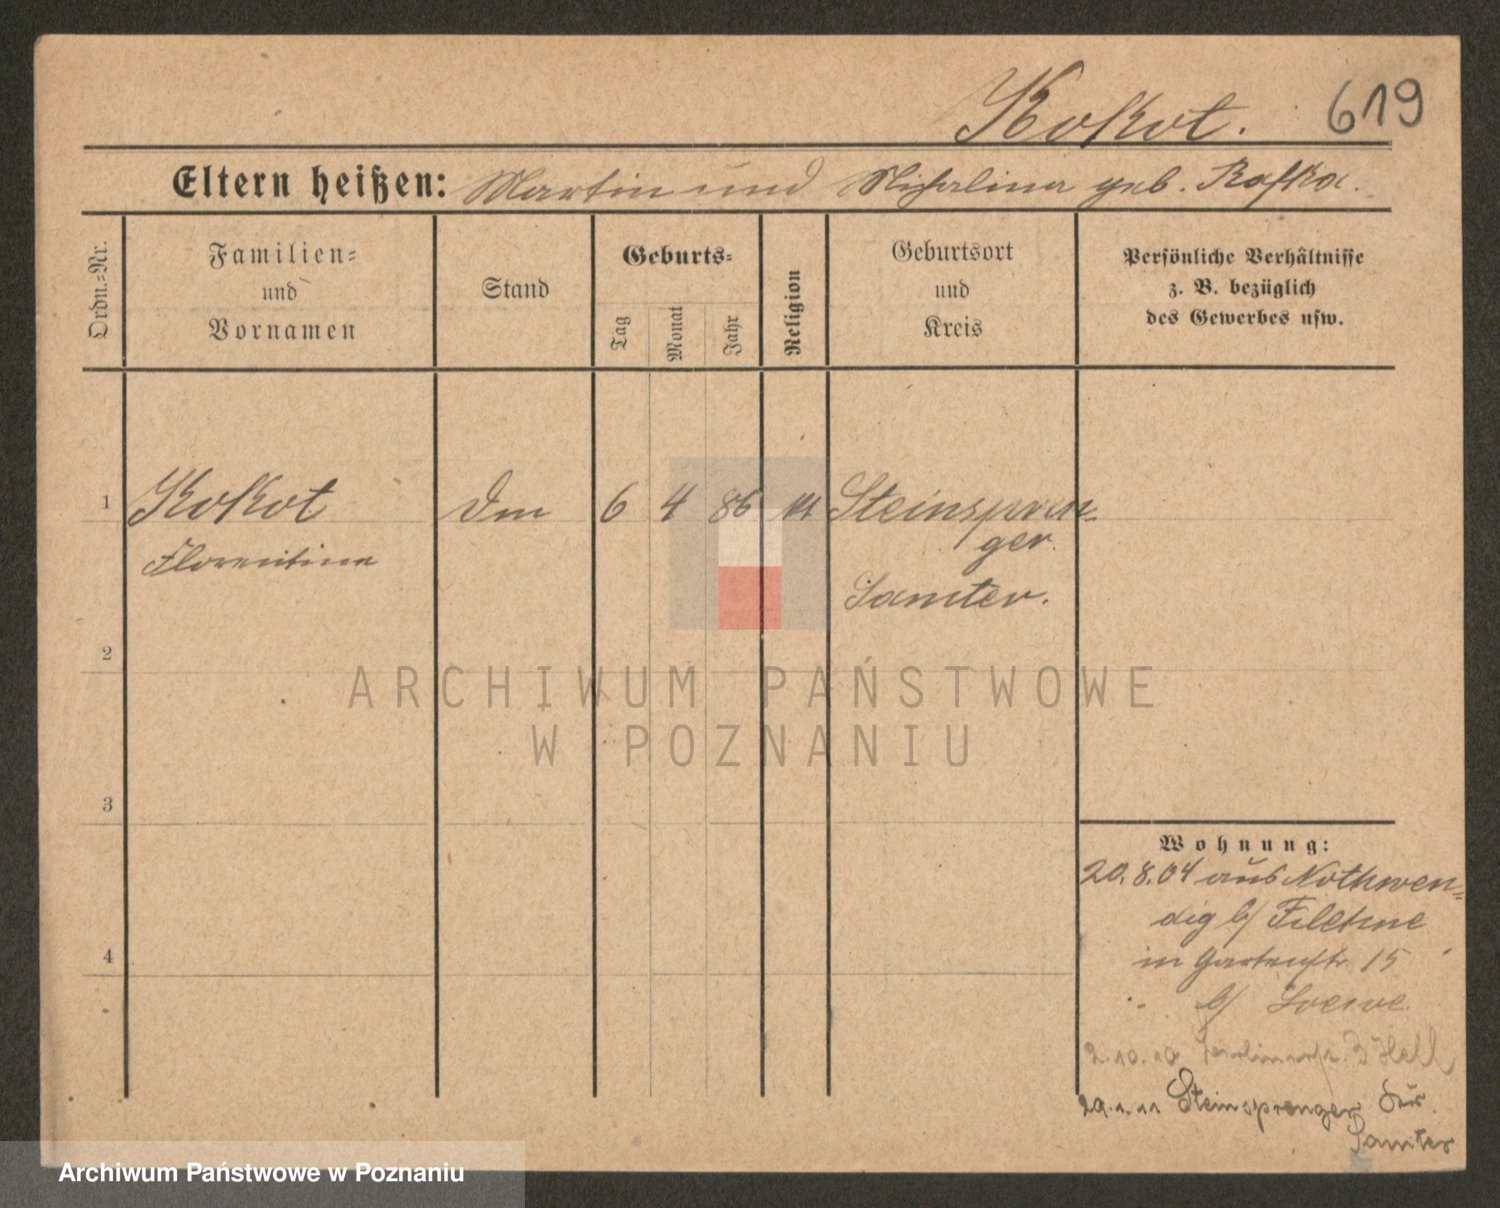 Kokot. 619
Eltern heißen: Martin und Michalina geb. Kafka.
Ordn.=Nr.
Familien=
und
Vornamen
Stand
Geburts=
Tag
Monat
Jahr
Religion
Geburtsort
und
Kreis
Persönliche Verhältnisse
z. B. bezüglich
des Gewerbes usw.
1 Kokot 6 4 86 Steinspren=
Florentine ger.
Samter.
2
ARCHIWUM PAŃSTWOWE
W POZNANIU
3
Wohnung:
20.8.04 aus Nothwen=
dig b/ Filehne
4
in Gartenstr. 15
b/ Loewe.
2.10.10 3 Hell
29.1.11 Steinsprenger
Samter
Archiwum Państwowe w Poznaniu